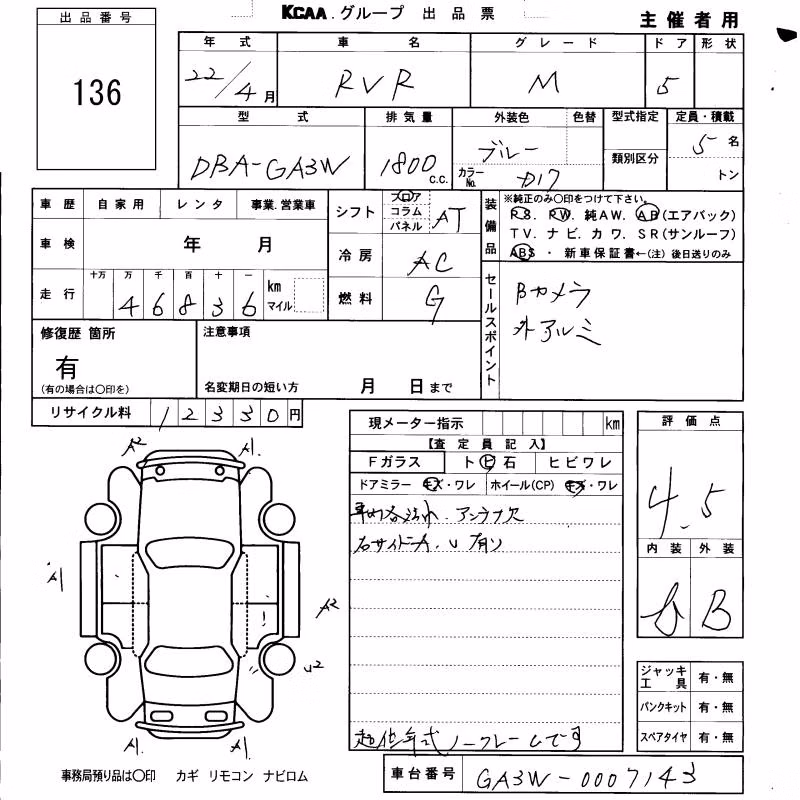 KCAA.グループ 出品票 主催者用
出品番号
136
年式 車名 グレード ドア 形状
22/4月 RVR M 5
型式 排気量 外装色 色替 型式指定 定員・積載
DBA-GA3W 1800 c.c. ブルー カラーNo. D17 類別区分 5名
トン
車歴 自家用 レンタ 事業.営業車
車検 年 月
走行 十万 万 千 百 十 一
46836 km マイル
シフト フロア コラム パネル AT
冷房 AC
燃料 G
装備品 ※純正のみ〇印をつけて下さい。
PS. PW. 純AW. AB(エアバック)
TV. ナビ. カワ. SR(サンルーフ)
ABS・新車保証書←(注)後日送りのみ
セールスポイント
Bカメラ
外アルミ
修復歴 箇所
有
(有の場合は〇印を)
注意事項
名変期日の短い方 月 日まで
リサイクル料 12330円
現メーター指示 km
【査定員記入】
Fガラス ト ビ 石 ヒビワレ
ドアミラー キズ・ワレ ホイール(CP) キズ・ワレ
アンテナ欠
右サイド
U 有り
低年式ノークレームです
評価点
4.5
内装 外装
B B
ジャッキ工具 有・無
パンクキット 有・無
スペアタイヤ 有・無
A2 A1
A1
A2
U2
A1 A1
事務局預り品は〇印 カギ リモコン ナビロム
車台番号 GA3W-0007143